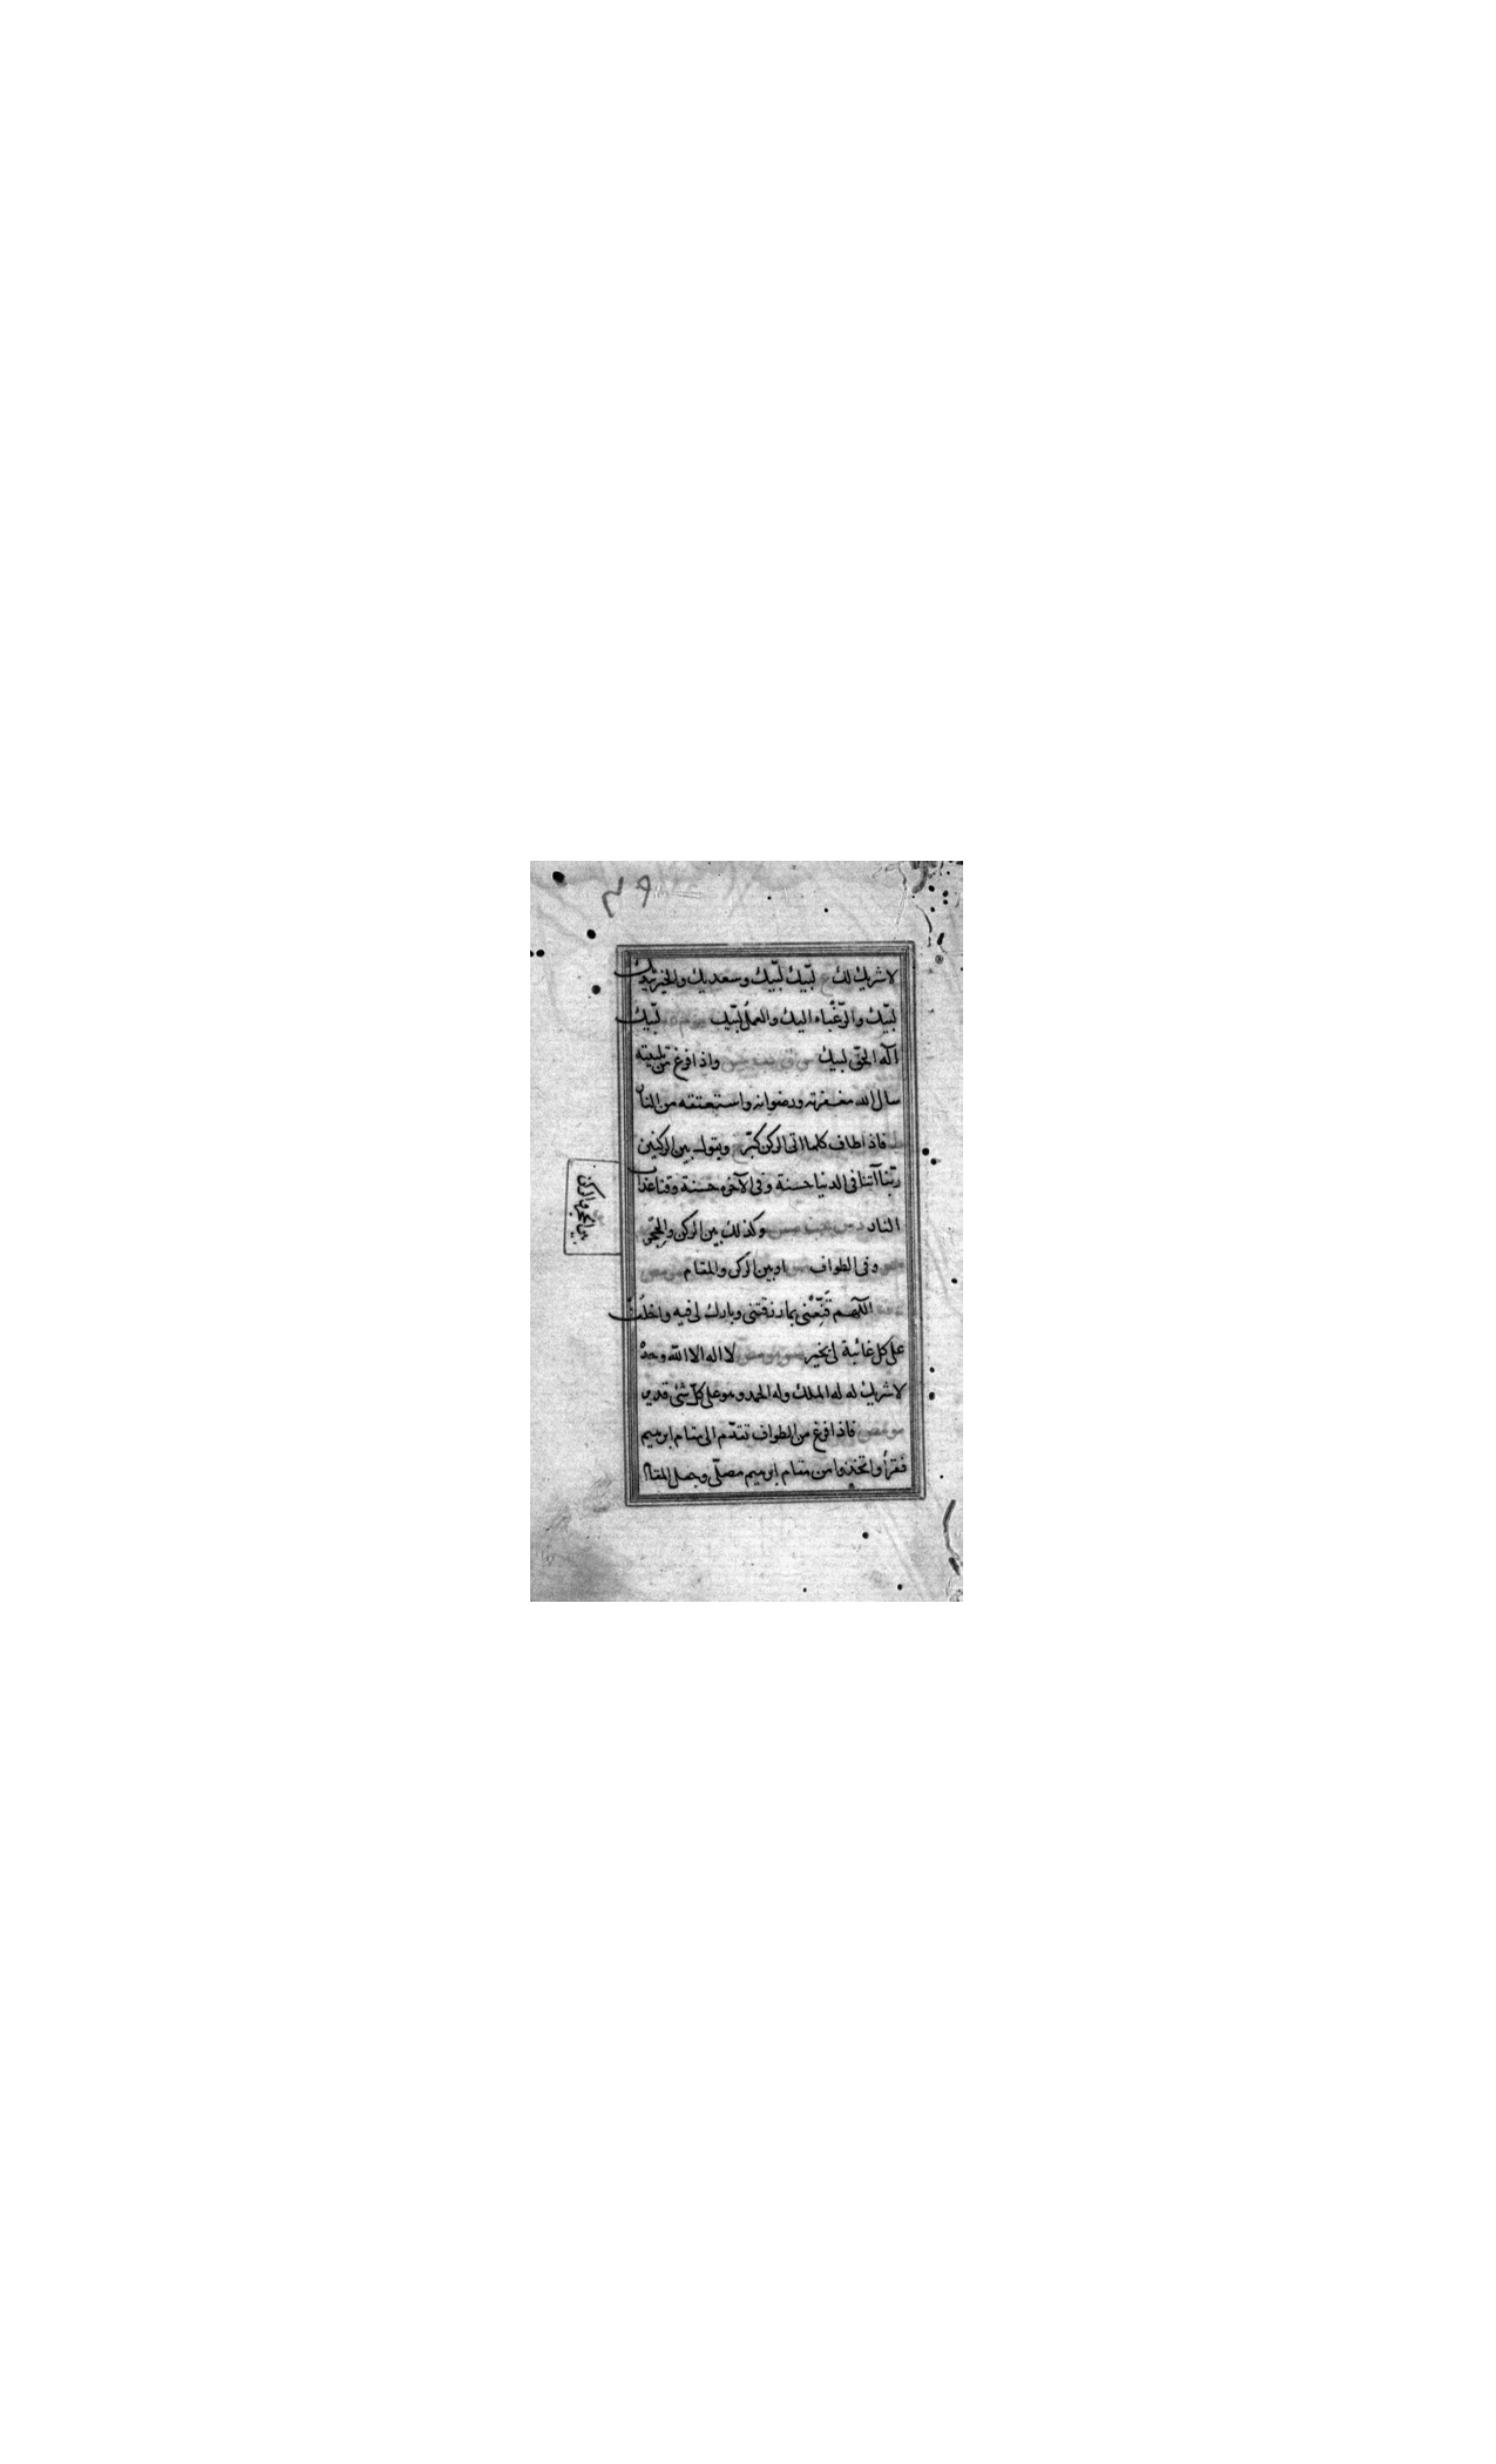 ٤٩
لا شريك لك ع لبّيك لبّيك وسعديك والخير بيديك
لبّيك والرّغباء اليك والعمل لبّيك لبّيك
اله الحقّ لبيك واذا فرغ من تلبيته
سال الله مغفرته ورضوانه واستعتقه من النار
فاذا طاف كلما اتى الركن كبّر ويقول بين الركنين
ربّنا آتنا فى الدنيا حسنة وفى الآخرة حسنة وقنا عذاب
النار وكذلك بين الركن والحجر
وفى الطواف او بين الركن والمقام
اللّهم قنّعنى بما رزقتنى وبارك لى فيه واخلف
على كل غائبة لى بخير لا اله الا الله وحده
لا شريك له له الملك وله الحمد وهو على كلّ شئ قدير
فاذا فرغ من الطواف تقدّم الى مقام ابرهيم
فقرأ واتخذوا من مقام ابرهيم مصلّى وجعل المقام
بين الحجر والركن